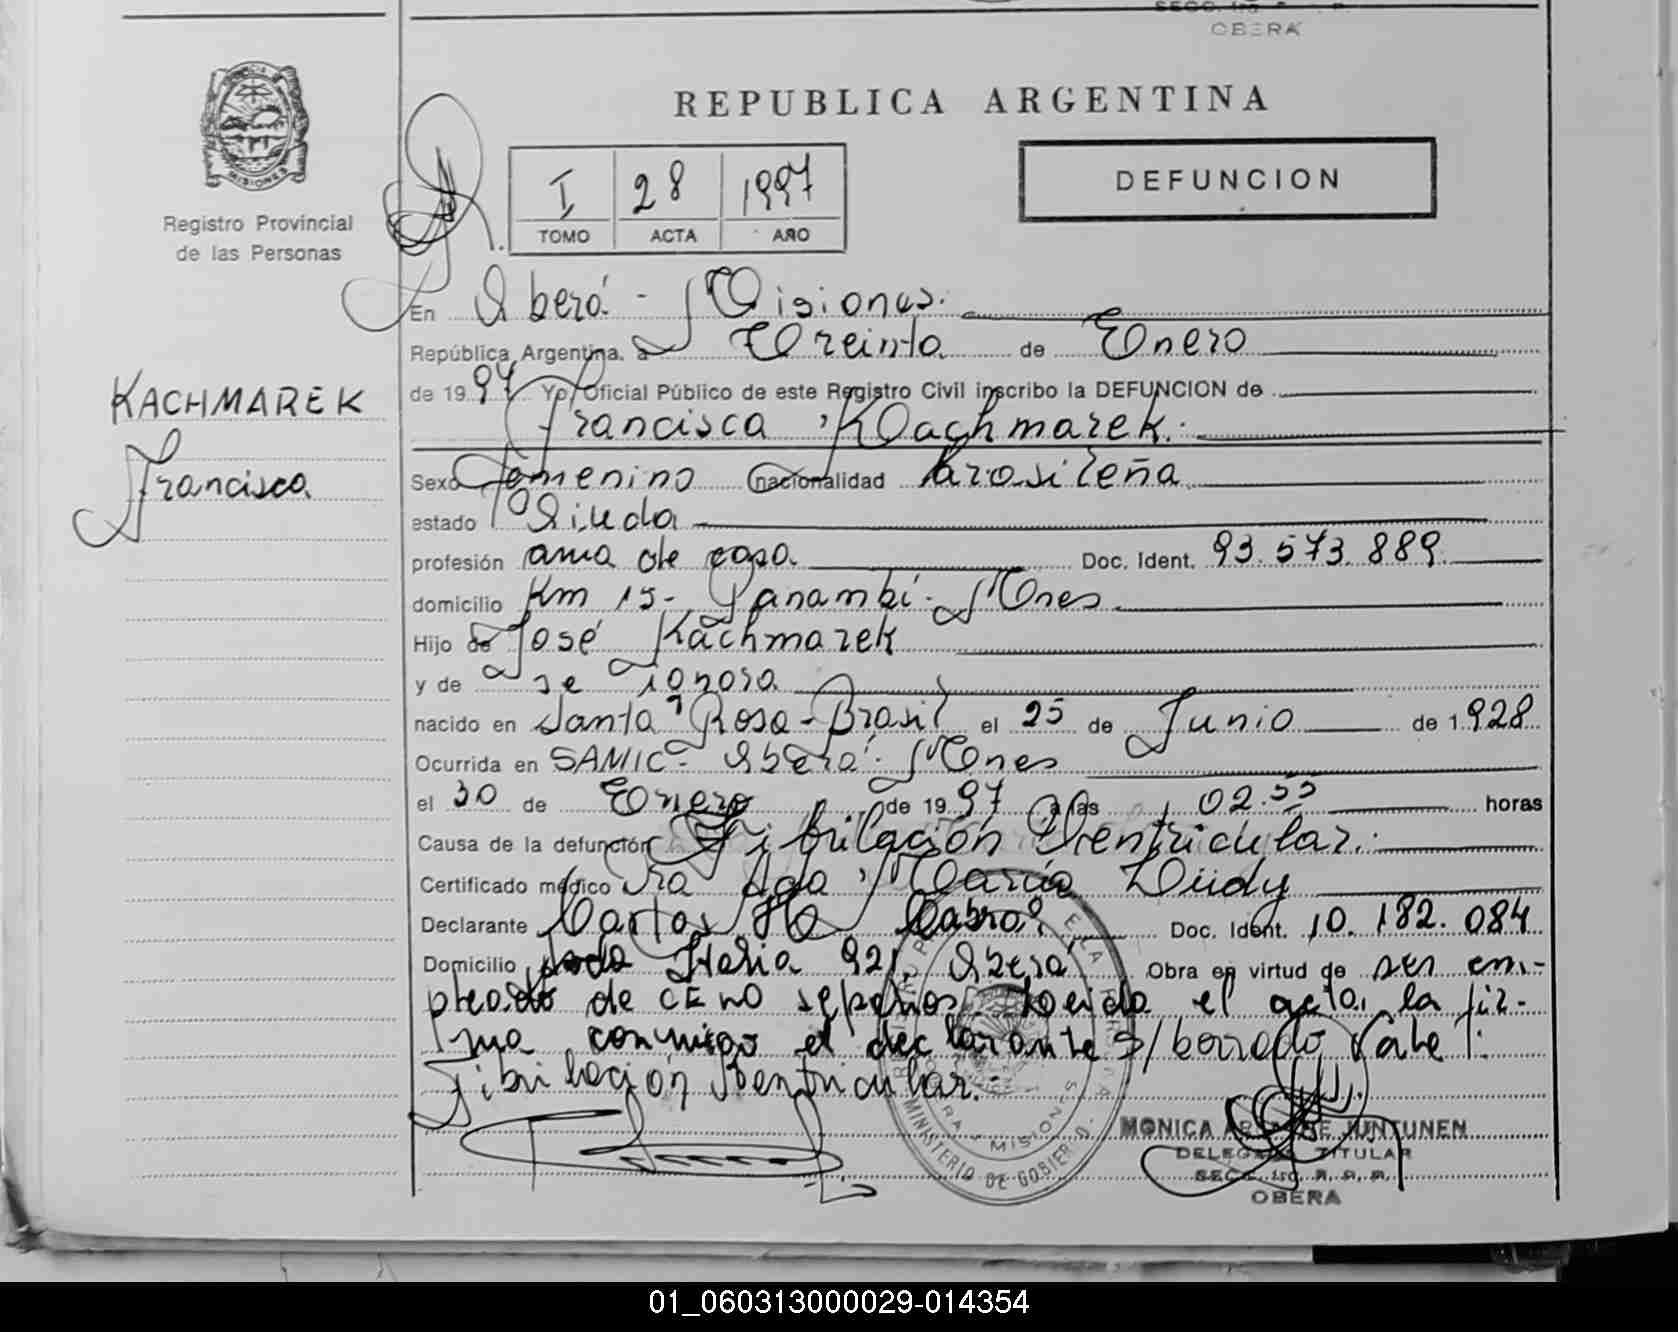 OBERA
REPUBLICA ARGENTINA
DEFUNCION
I 28 1997
TOMO ACTA AÑO
MISIONES
Registro Provincial
de las Personas
KACHMAREK
Francisca
En Oberá - Misiones.
República Argentina, a Treinta de Enero
de 1997 Yo, Oficial Público de este Registro Civil inscribo la DEFUNCION de
Francisca Kachmarek.
Sexo Femenino nacionalidad brasileña
estado Viuda
profesión ama de casa Doc. Ident. 93.573.889
domicilio Km 15- Panambí. Mnes
Hijo de José Kachmarek
y de se ignora
nacido en Santa Rosa - Brasil el 25 de Junio de 1.928
Ocurrida en SAMIC - Oberá. Mnes
el 30 de Enero de 1997 a las 02.55 horas
Causa de la defunción Fibrilación Ventricular.
Certificado médico Dra Ada María Dudy
Declarante Carlos H Cabral Doc. Ident. 10.182.084
Domicilio Italia 921 Oberá Obra en virtud de ser em-
pleado de sepelios. Leída el acta, la fir-
ma conmigo el declarante S/borrado Vale:
Fibrilación Ventricular.-
MINISTERIO DE GOBIERNO
OBERA - MISIONES
MONICA DE JUNTUNEN
DELEGADA TITULAR
SECC. 1ra. R. P. P.
OBERA
01_060313000029-014354